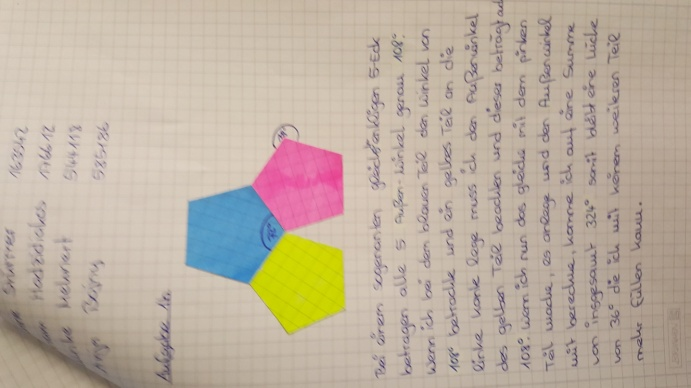 163542
Headschiabass 176612
Mehmert 544118
Beijing 535136
Aufgabe 1a.
108°
108°
Bei einem sogenannten gleichschenkligen 5-Eck
betragen alle 5 Außen-Winkel genau 108°.
Wenn ich bei dem blauen Teil den Winkel von
108° betrachte und ein gelbes Teil an die
linke Kante lege muss ich den Außenwinkel
des gelben Teil beachten und dieser beträgt auch
108°. Wenn ich nun das gleiche mit dem pinken
Teil mache, es anlege und den Außenwinkel
mit berechne, komme ich auf eine Summe
von insgesamt 324° somit bleibt eine Lücke
von 36° die ich mit keinem weiteren Teil
mehr füllen kann.